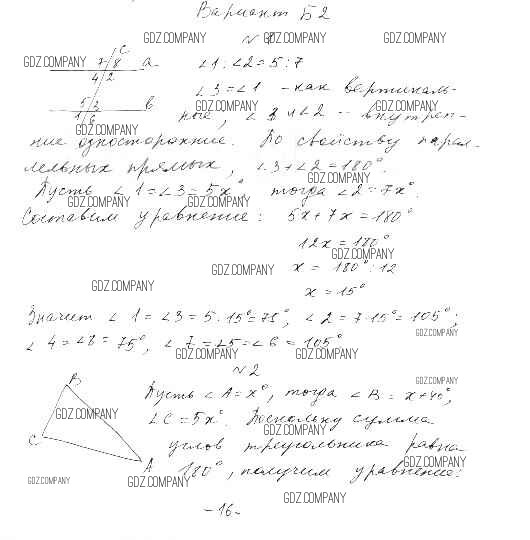 Вариант Б2
GDZ.COMPANY № 1 GDZ.COMPANY GDZ.COMPANY
GDZ.COMPANY
c
7 8 a
4 2
5 3 b
1 6
GDZ.COMPANY
∠1:∠2=5:7
∠3=∠1 - как вертикаль-
GDZ.COMPANY GDZ.COMPANY
ные, ∠3 и ∠2 - внутрен-
ние односторонние. По свойству парал-
лельных прямых, ∠3+∠2=180°.
GDZ.COMPANY
Пусть ∠1=∠3=5x°, тогда ∠2=7x°.
GDZ.COMPANY GDZ.COMPANY
Составим уравнение: 5x+7x=180°
12x=180°
GDZ.COMPANY
GDZ.COMPANY x=180°:12
GDZ.COMPANY x=15°
Значит ∠1=∠3=5·15°=75°, ∠2=7·15°=105°;
GDZ.COMPANY
∠4=∠8=75°, ∠7=∠5=∠6=105°
GDZ.COMPANY GDZ.COMPANY
№2
GDZ.COMPANY
B
C
A
GDZ.COMPANY
Пусть ∠A=x°, тогда ∠B=x+40°,
∠C=5x°. Поскольку сумма
GDZ.COMPANY
углов треугольника равна
GDZ.COMPANY
180°, получим уравнение:
GDZ.COMPANY GDZ.COMPANY
GDZ.COMPANY
-16-